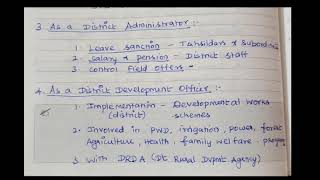 3 As a District Administrator :-
1. Leave sanction - Tahsildars & Subordi
2. Salary & pension - District staff
3 Control Field offers -
4. As a District Development Officer :-
1. Implementanin - Developmental works
(district) schemes
2. Involved in PWD, irrigation, power, forest
Agriculture, Health, family welfare - progra
3 With DRDA (Dt Rural Dvpmt Agency)